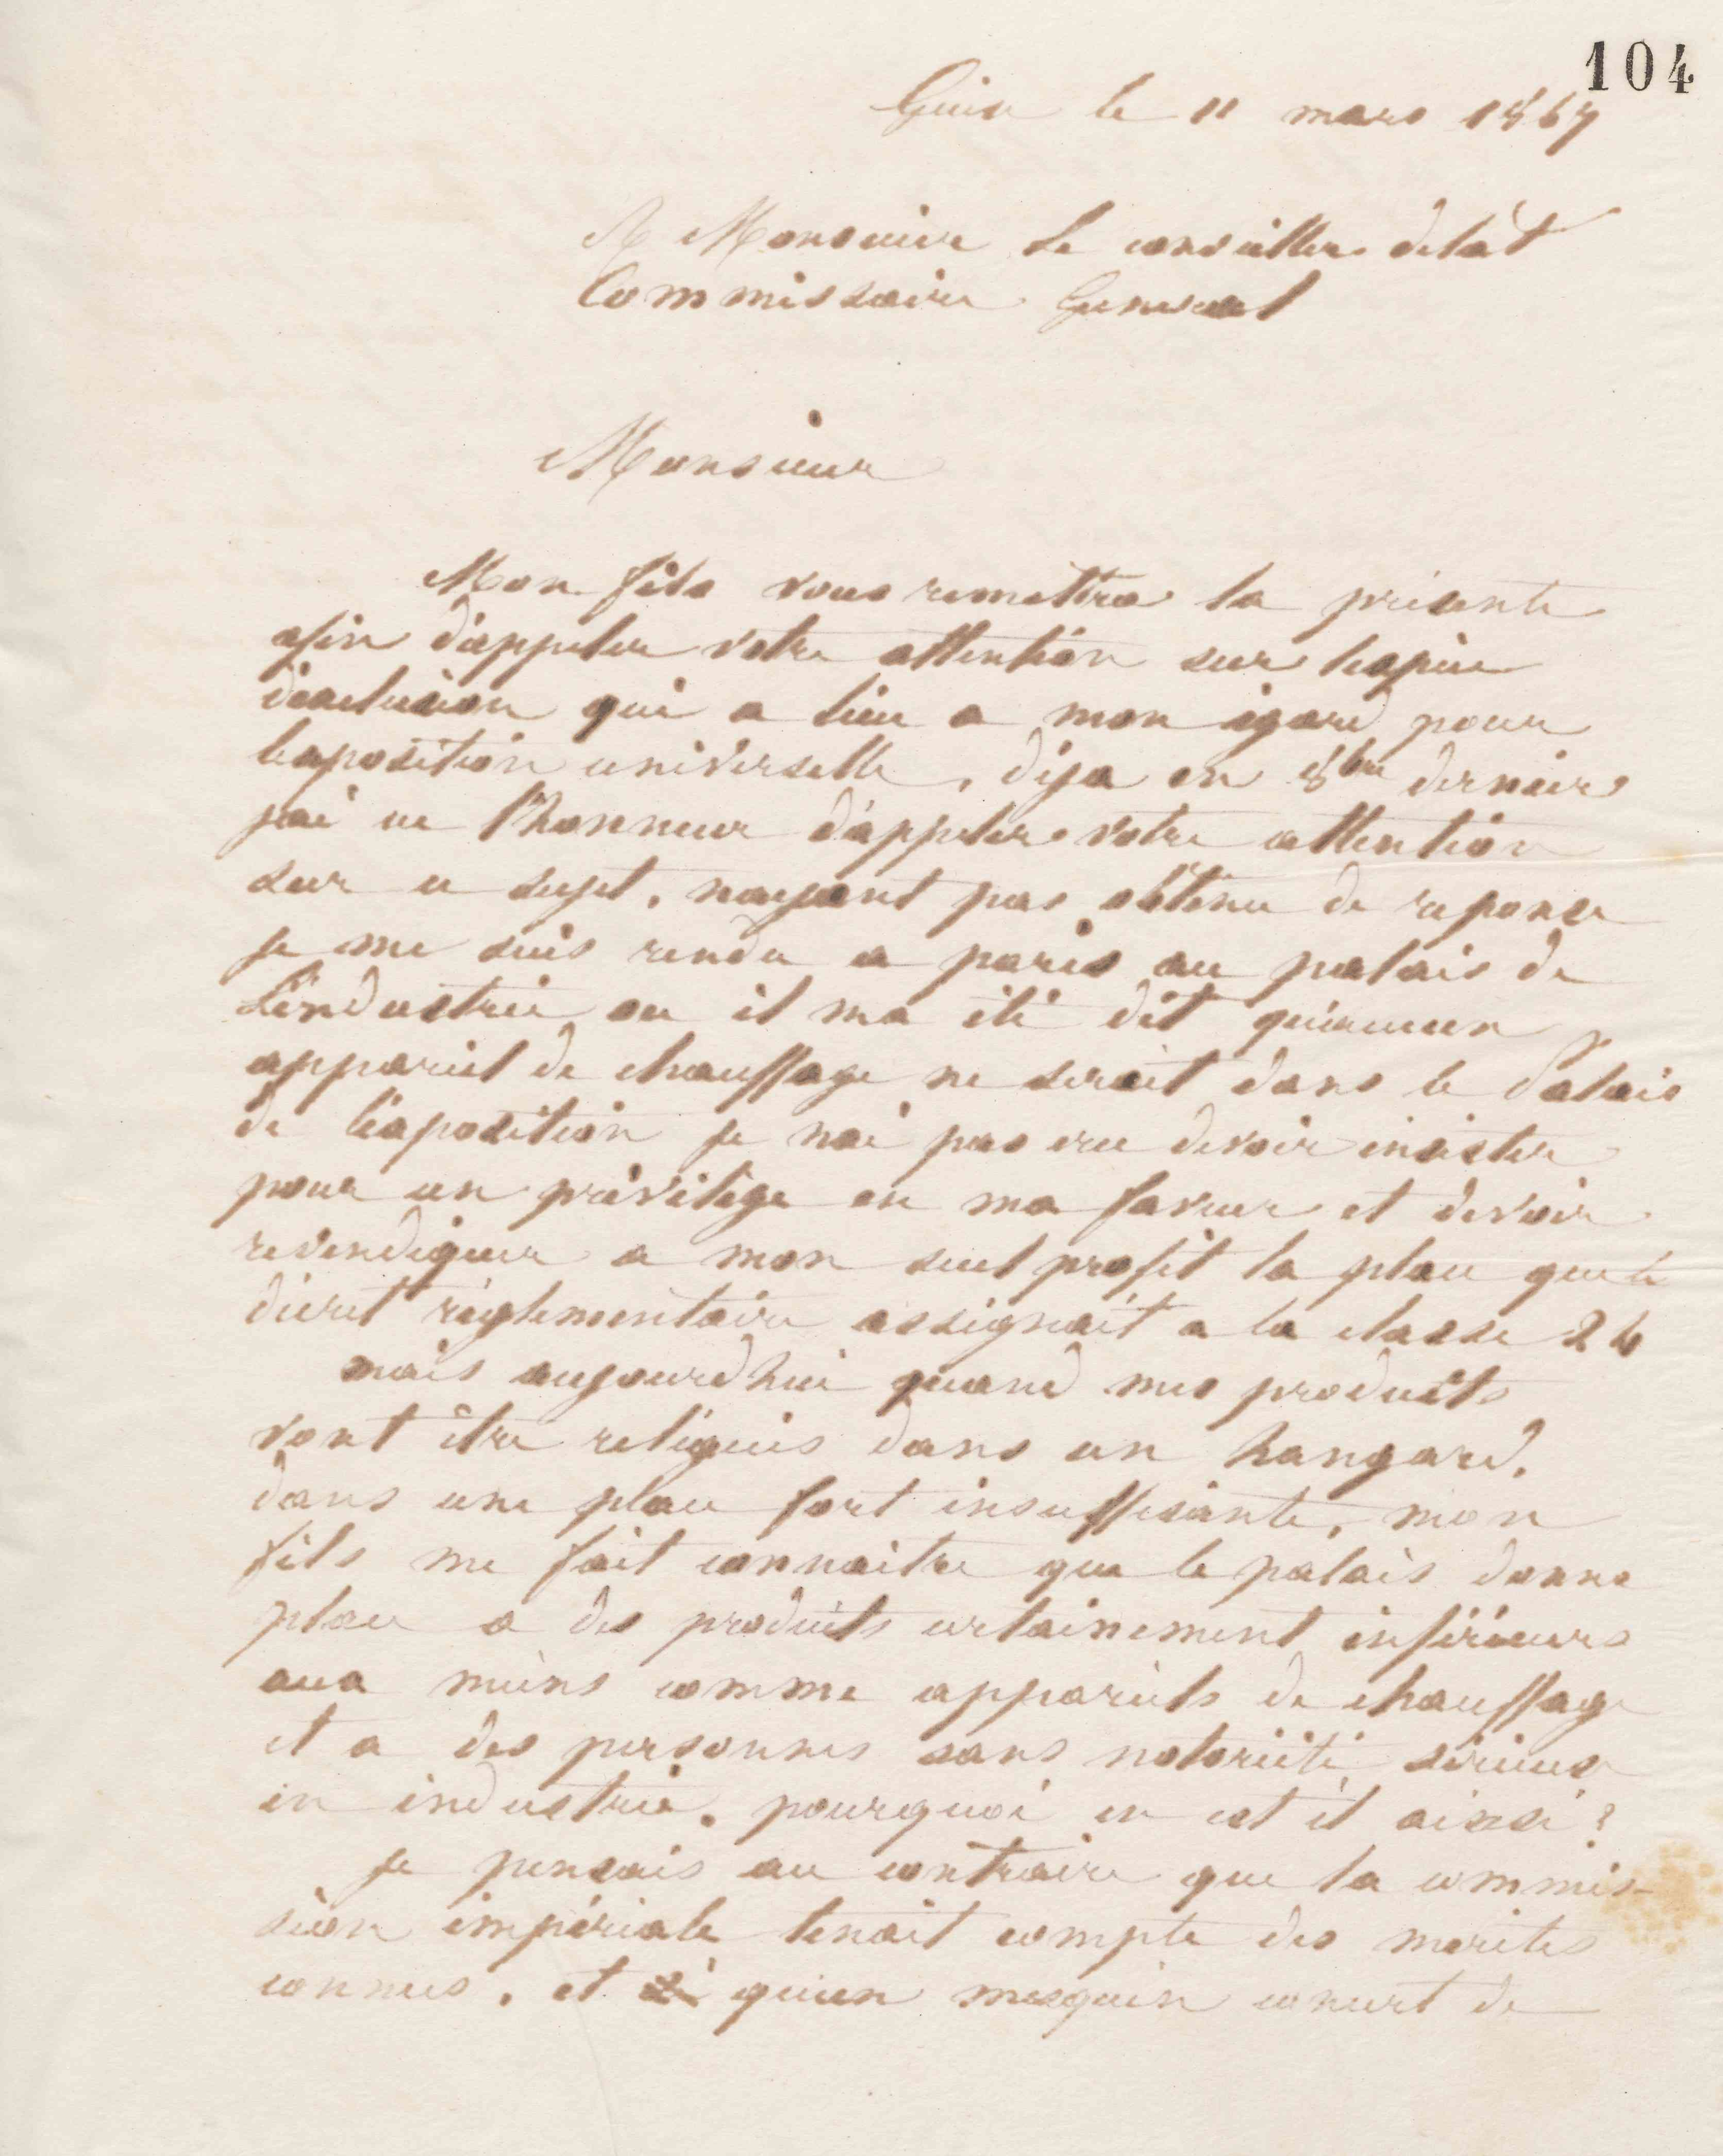 104
Guise le 11 mars 1867
A Monsieur Le conseiller detat
Commissaire General
Monsieur
Mon fils vous remettra la présente
afin d'appeler votre attention sur lespèce
dexclusion qui a lieu a mon égard pour
lexposition universelle, déja en 8bre dernier
jai eu l'honneur d'appeler votre attention
sur ce sujet, nayant pas obtenu de reponse
je me suis rendu a paris au palais de
L'industrie ou il ma été dit qu'aucun
appareil de chauffage ne serait dans le Palais
de l'exposition je nai pas cru devoir insister
pour un privilège en ma faveur et devoir
revendiquer a mon seul profit la place que le
décret réglementaire assignait a la classe 24
mais aujourd'hui quand mes produits
vont être relégués dans un hangard,
dans une place fort insuffisante, mon
fils me fait connaitre que le palais donne
place a des produits certainement inférieurs
aux miens comme appareils de chauffage
et a des personnes sans notoriété sérieuse
en industrie. pourquoi en est il ainsi?
je pensais au contraire que la commis-
sion impériale tenait compte des merites
connus, et qu'un mesquin concert de